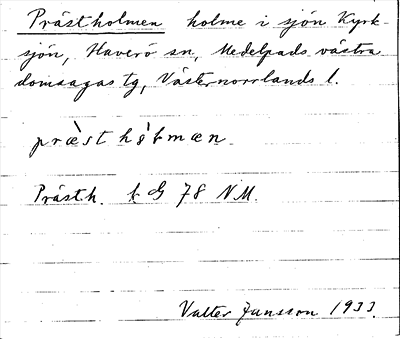 Prästholmen holme i sjön Kyrk-
sjön, Haverö sn, Medelpads västra
domsagas tg, Västernorrlands l.
præ̀sthòłmæn.
Prästh. k G 78 NM.
Valter Jansson 1933.